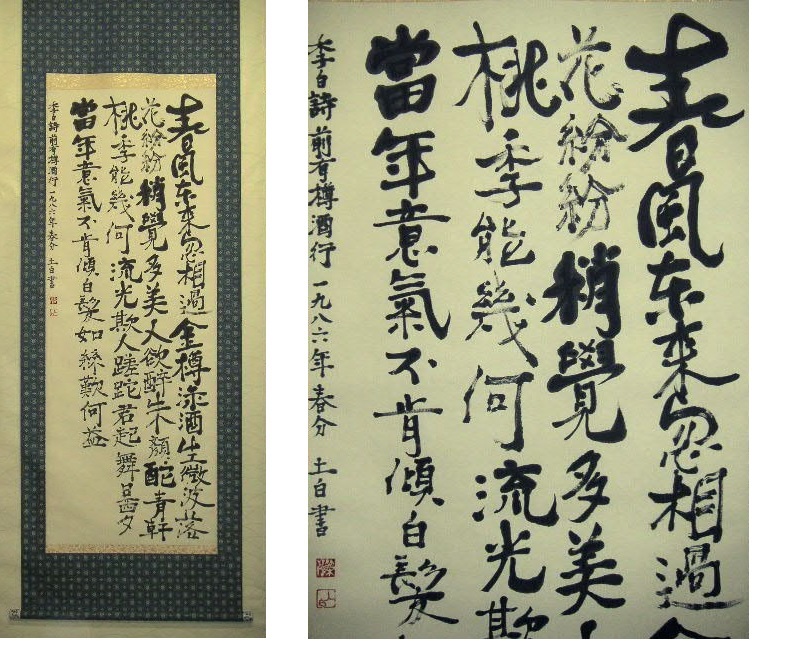 春風东來忽相過金樽渌酒生微波落
花紛紛稍覺多美人欲醉朱顏酡青軒
桃李能幾何流光欺人蹉跎君起舞日西夕
當年意氣不肯傾白髮如絲歎何益
李白詩前有樽酒行 一九八六年春分 土白書
春風东來忽相過金
花紛紛稍覺多美
桃李能幾何流光欺
當年意氣不肯傾白髮
李白詩前有樽酒行 一九八六年春分 土白書